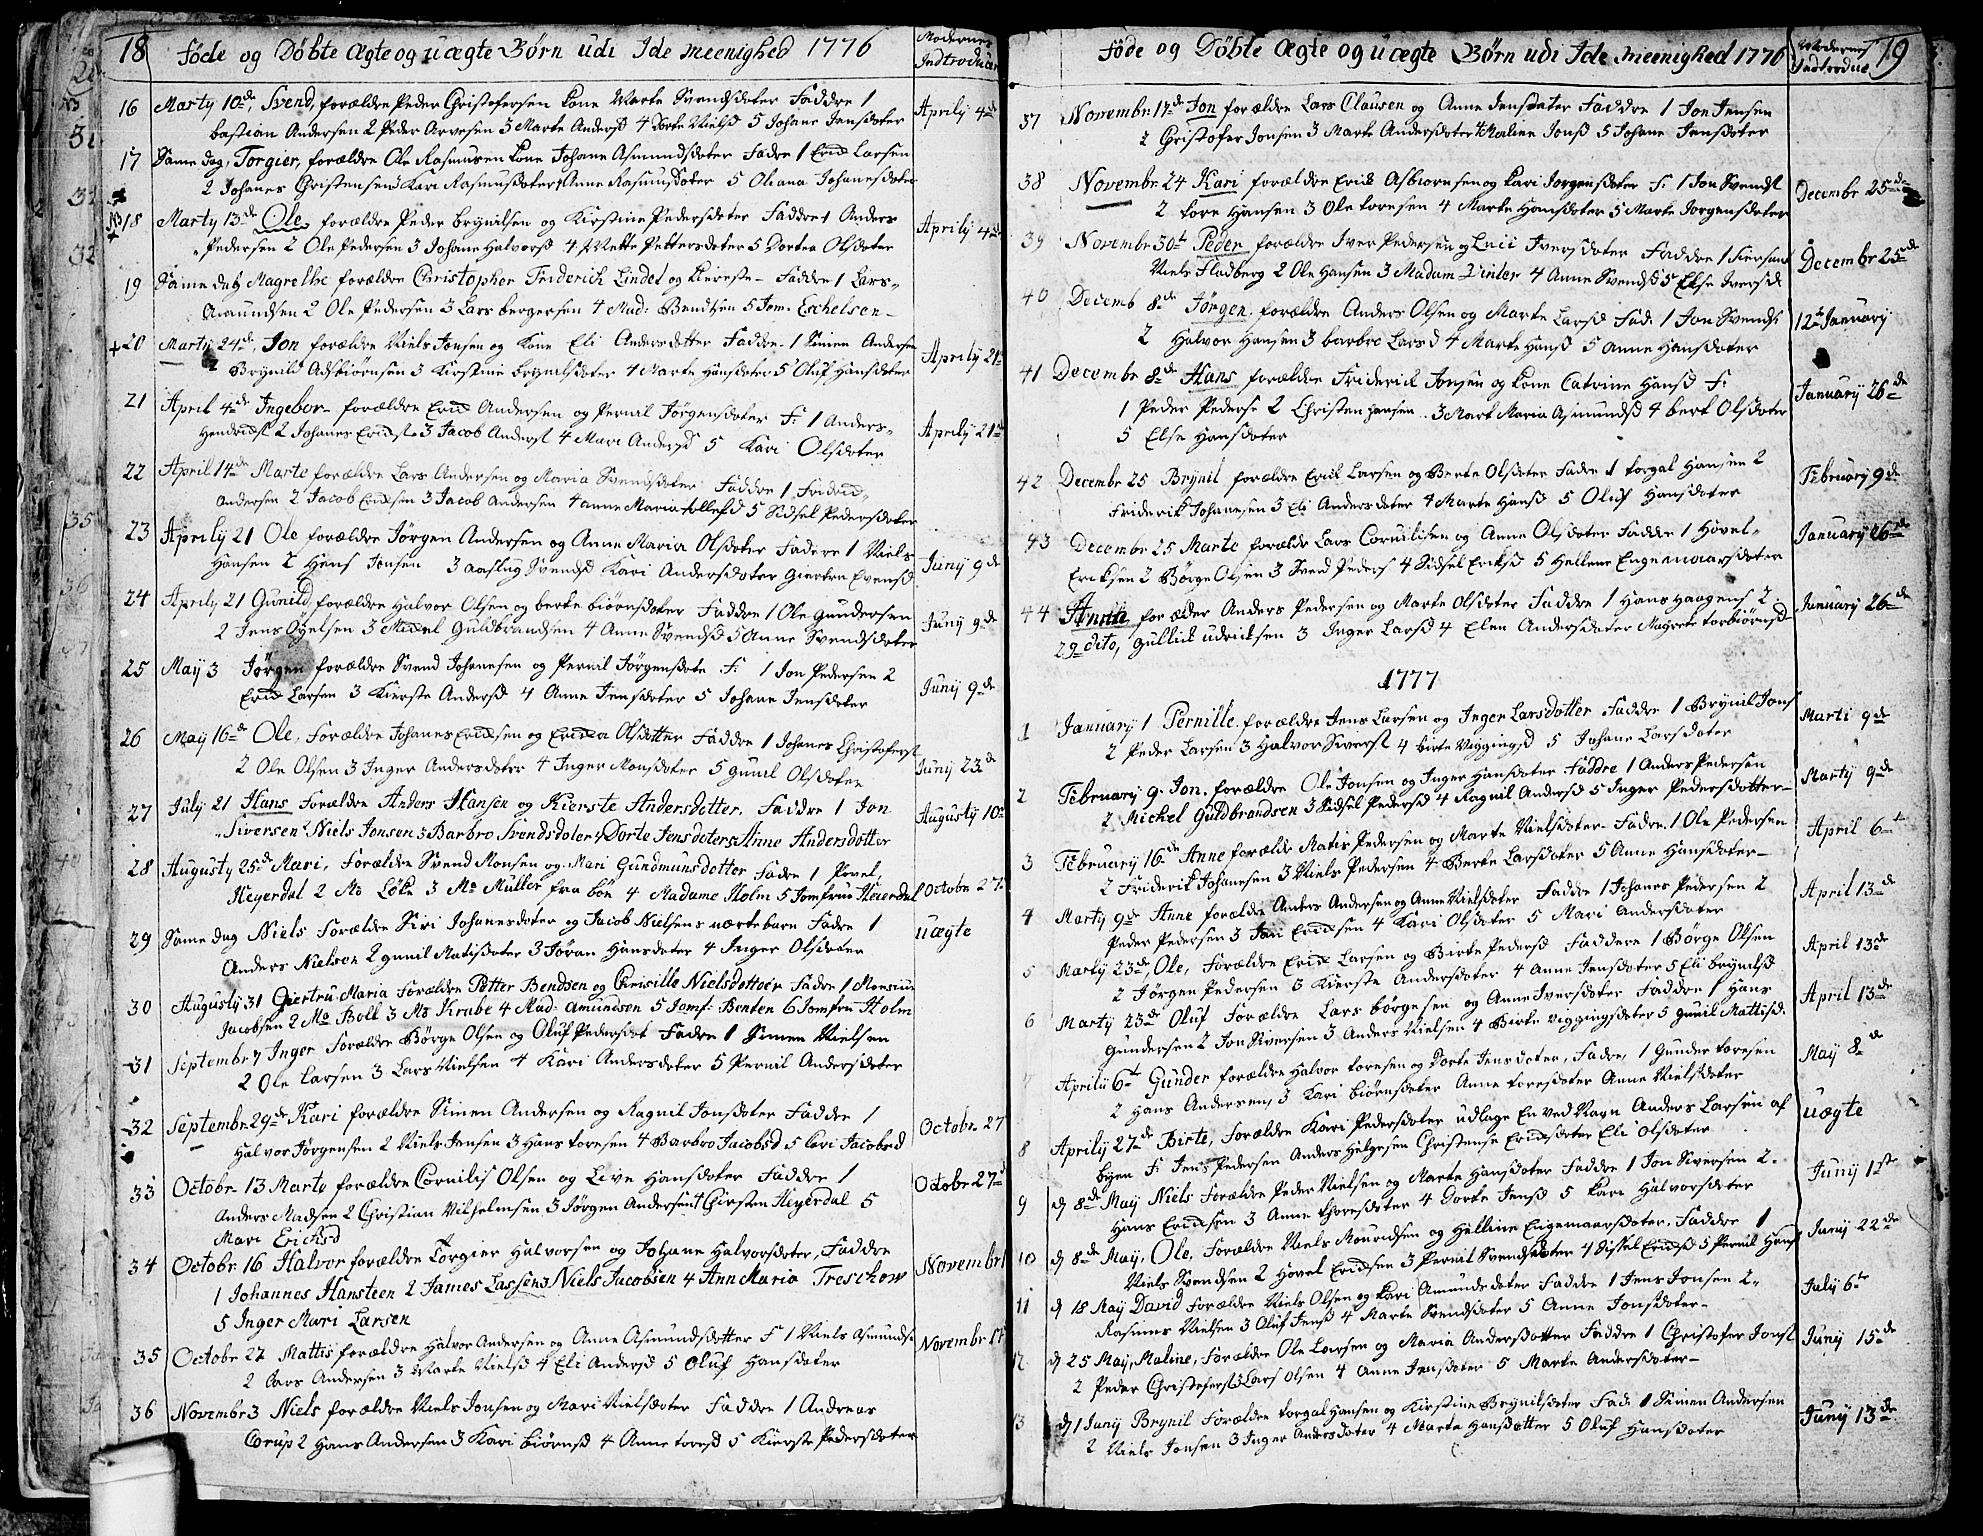 18 Føde og Døbte Ægte og uægte Børn udi Ide meenighed 1776
Modernes Indtroducer
16 Marty 10de Svend, forældre Peder Christofersen Kone Marte Svendsdoter Faddre 1
bastian Andersen 2 Peder Arvesen 3 Marte Andersd 4 Dorte Nielsd 5 Johane Jensdoter
Aprily 4de
17 Same dag, Torgier, forældre Ole Rasmusen Kone Johane Asmundsdoter Fadre 1 Erich Larsen
2 Johanes Christensen 3 Kari Rasmusdoter 4 Anne Rasmusdoter 5 Oliana Johanesdoter
18 Marty 13de Ole, forældre Peder Brynilsen og Kirstine Pedersdoter Faddre 1 Anders
Pedersen 2 Ole Pedersen 3 Johane Halvorsd 4 Mette Pettersdoter 5 Dortea Olsdoter
Aprily 4de
19 Same dag Magrethe forældre Christopher Friderich Lindel og Kiereste Faddre 1 Lars
Amundsen 2 Ole Pedersen 3 Lars bergersen 4 Mad: Bendtsen 5 Jom. Eschelsen
20 Marty 24de, Jon forældre Niels Jonsen og Kone Eli Andersdotter Faddre 1 Simen Andersen
2 Brynild Adsbiørnsen 3 Kirstine brynilsdoter 4 Marte Hansdoter 5 Oluf Hansdoter
Aprily 21de
21 April 4de Ingebor forældre Erich Andersen og Pernil Jørgensdoter F: 1 Anders
Hendrichs 2 Johanes Erichs 3 Jacob Anders 4 Mari Andersd 5 Kari Olsdoter
Aprily 21de
22 April 14de Marte forældre Lars Andersen og Maria Svendsdoter Faddre 1 Fridrich
Andersen 2 Jacob Erichsen 3 Jacob Andersen 4 anne Maria tollefsd 5 Sidsel Pedersdoter
23 Aprily 21 Ole forældre Jørgen Andersen og Anne Maria Olsdoter Fadere 1 Niels
Hansen 2 Hans Jonsen 3 aaslug Svendsd Kari Andersdoter Giertru Evensd
Juny 9de
24 Aprily 21 Gunild, forældre Halvor Olsen og berte biørnsdoter Faddre 1 Ole Gundersen
2 Jens Oyelsen 3 Michel Guldbrandsen 4 Anne Svendsd 5 Anne Svendsdoter
Juny 9de
25 May 3 Jørgen forældre Svend Johanesen og Pernil Jørgensdote F: 1 Jon Pedersen 2
Erich Larsen 3 Kierste Andersd 4 Anne Jensdoter 5 Johane Jensdoter
Juny 9de
26 May 16de Ole, Forældre Johanes Erichsen og Ericha Olsdotter Faddre 1 Johanes Christofers
2 Ole Olsen 3 Inger Andersdoter 4 Inger Monsdoter 5 gunil Olsdoter
Juny 23de
27 July 21 Hans Forældre Anders Hansen og Kierste Andersdotter. Faddre 1 Jon
Siversen 2 Niels Jonsen 3 Barbro Svendsdoter 4 Dorte Jensdoter 5 Anne Andersdotter
Augusty 10
28 Augusty 25de Mari, forældre Svend Monsen og Mari Gundmunsdotter Fadre 1 Povel,
Heyerdal 2 Mo Løke 3 Mo Müller fra bøn 4 Madame Holm 5 Jomfrue Heierdal
Octobr 27
29 Same dag Niels Forældre Siri Johanesdoter og Jacob Nielsens uærte barn Fadre 1
Anders Nielsen 2 gunil Matisdoter 3 Jøran Hansdoter 4 Inger Olsdoter
uægte
30 Augusty 31 Giertru Maria Forældre Petter Bendsen og Chrisille Nielsdotter Fadre 1 Monsiur
Jacobsen 2 Mo Boll 3 Mo Krabe 4 Mad: Amundsen 5 Jomf: Benten 6 Jomfru Holm
31 Septembr 7 Inger Forældre Børge Olsen og Oluf Pedersdot Fadre 1 Simen Nielsen
2 Ole Larsen 3 Lars Nielsen 4 Kari Andersdoter 5 Pernil Andersdoter
32 Septembr 29de Kari forældre Simen Andersen og Ragnil Jonsdoter Faddre 1
Halvor Jørgensen 2 Niels Jensen 3 Hans toresen 4 Barbro Jacobsd 5 Cari Jacobsd
Octobr. 27
33 Octobr 13 Marte forældre Cornilis Olsen og Live Hansdoter Faddre 1
Anders Madsen 2 Christian Vilhelmsen 3 Jørgen Andersen 4 Chirsten Heyerdal 5
Mari Erichsd
Octobr 27de
34 Octobr 16 Halvor forældre Torgier Halvorsen og Johane Halvorsdoter, Faddre
1 Johannes Hansteen 2 James Lassen 3 Niels Jacobsen 4 Ann Maria Treschow
5 Inger Mari Larsen
Novembr 1
35 Octobr 27 Mattis forældre Halvor Andersen og Anne Asmundsdotter F 1 Niels Asmunds
2 Lars Andersen 3 Marte Nielsd 4 Eli Andersd 5 Oluf Hansdoter
Novembr 17
36 Novembr 3 Niels forældre Niels Jonsen og Mari Nielsdoter Faddre 1 Andreas
Corup 2 Hans Andersen 3 Kari biørnsd 4 Anne toresd 5 Kierste Pedersdoter
Føde og Døbte Ægte og uægte Børn udi Ide Meenighed 1776
Modernes Indtroduc 19
37 Novembr 17de Jon forældre Lars Clausen og Anne Jensdater Faddre 1 Jon Jensen
2 Christofer Jonsen 3 Marte Andersdoter 4 Maline Jonsd 5 Johane Jensdoter
38 Novembr 24 Kari forældre Erich Asbiornsen og Kari Jorgensdoter F: 1 Jon Svends
2 tore Hansen 3 Ole toresen 4 Marte Hansdoter 5 Marte Jorgensdoter
Decembr 25de
39 Novembr 30t Peder forældre Iver Pedersen og Lucie Iversdoter Faddre 1 Siersant
Niels Fladberg 2 Ole Hansen 3 Madam Vinter 4 Anne Svendsd 5 Else Iversd
Decembr 25de
40 Decemb 8de Jørgen forældre Anders Olsen og Marte Larsd Fad. 1 Jon Svends
2 Halvor Hansen 3 barbro Larsd 4 Marte Hansd 5 Anne Hansdoter
12te January
41 Decembr 8de Hans forældre Friderich Jonsen og Kone Catrine Hansd F:
1 Peder Peders 2 Christen hansen 3 Mart Maria Asmundsd 4 bert Olsdoter
5 Else Hansdoter
January 26de
42 Decembr 25 Brynil forældre Erich Larsen og Berte Olsdoter Fadre 1 torgal Hansen 2
Friderich Johanesen 3 Eli Andersdoter 4 Marte Hansd 5 Oluf Hansdoter
February 9de
43 Decembr 25 Marte forælde Lars Cornilisen og Anne Olsdoter Fadre 1 Hovel
Eriksen 2 Børge Olsen 3 Svend Peders 4 Sidsel Eriksd 5 Hellene Engemoarsdoter
January 26de
44 Anne forælder Anders Pedersen og Marte Olsdoter Faddre 1 Hans haagens 2
29 dito, Gullich udricksen 3 Inger Larsd 4 Elen Andersdoter Magrete torbiørnsd
January 26de
1777
1 January 1 Pernille, forældre Jens Larsen og Inger Larsdotter Faddre 1 Brynil Jons
2 Peder Larsen 3 Halvor Siverst 4 birte Viggingsd 5 Johane Larsdoter
Marti 9de
2 February 9. Jon, forældre Ole Jonsen og Inger Hansdoter Faddre 1 Anders Pedersen
2 Michel Guldbrandsen 3 Sidsel Pedersd 4 Ragnil Andersd 5 Inger Pedersdotter
Marty 9de
3 February 16de Anne forælde Matis Pedersen og Marte Nielsdoter Fadre, 1 Ole Pedersen
2 Friderik Johanesen 3 Niels Pedersen 4 Berte Larsdoter 5 Anne Hansdoter
April 6te
4 Marty 9de Anne forældre Anders Andersen og Anne Nielsdoter Faddre 1 Johanes Pedersen 2
Peder Pedersen 3 Jan Erichsen 4 Kari Olsdoter 5 Mari Andersdoter
April 13de
5 Marty 23de, Ole, Forældre Erich Larsen og Birte Pedersd Faddere 1 Børge Olsen
2 Jørgen Pedersen 3 Kierste Andersdoter 4 Anne Jensdoter 5 Eli brynilsd
April 13de
6 Marty 23de Oluf Forældre Lars børgesen og Anne Iversdoter Faddre 1 Hans
Gundersen 2 Jon Siversen 3 Anders Nielsen 4 Birte viggingsdoter 5 gunil Mattisd.
April 13de
7 Aprily 6te Gunder forældre Halvor toresen og Dorte Jensdoter, Fadre, 1 Gunder toresen
2 Hans Andersen, 3 Kari biørnsdoter Anne toresdoter Anne Nielsdoter
May 8de
8 Aprily 27de Birte, forældre Kari Pedersdoter udlage En ved Navn Anders Larsen af
byen F: Jens Pedersen Anders Helgesen Christense Erichsdoter Eli Olsdoter
uægte
9 d 8de May Niels forældre Peder Nielsen og Marte Hansdoter Faddre 1 Jon Siversen 2
Hans Erichsen 3 Anne thoresdoter 4 Dorte Jensd 5 Kari Halvorsdoter
Juny 1ste
10 d 8de May, Ole, Forældre Niels Mouridsen og Helline Engemaarsdoter, Faddre 1
Niels Svendsen 2 Hovel Erichsen 3 Pernil Svendsdoter 4 Sissel Erichsd 5 Pernil Hans
Juny 22de
11 d 18 May David forældre Niels Olsen og Kari Amundsdoter Faddre 1 Jens Jonsen 2
Rasmus Nielsen 3 Oluf Jensd 4 Marte Svendsdoter 5 Anne Jonsdoter
July 6te
12 d 25 May, Maline, Forældre Ole Larsen og Maria Andersdotter Faddre 1 Christofer Jonst
2 Peder Christoferst 3 Lars Olsen 4 Anne Jensdoter 5 Marte Andersdoter
Juny 15de
13 d 1 Juny Brynil Forældre torgal Hansen og Kirstine Brynilsdoter Fad: 1 Simen Andersen
2 Niels Jonsen 3 Inger Andersdoter 4 Marte Hansdotter 5 Oluf Hansdoter
Juny 13de